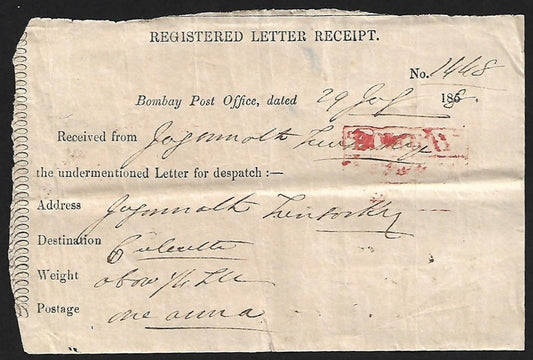 REGISTERED LETTER RECEIPT.
No. 1448
Bombay Post Office, dated 29 186
Received from Jogonnath
the undermentioned Letter for despatch :—
Address Jogonnath
Destination Calcutta
Weight
Postage one anna